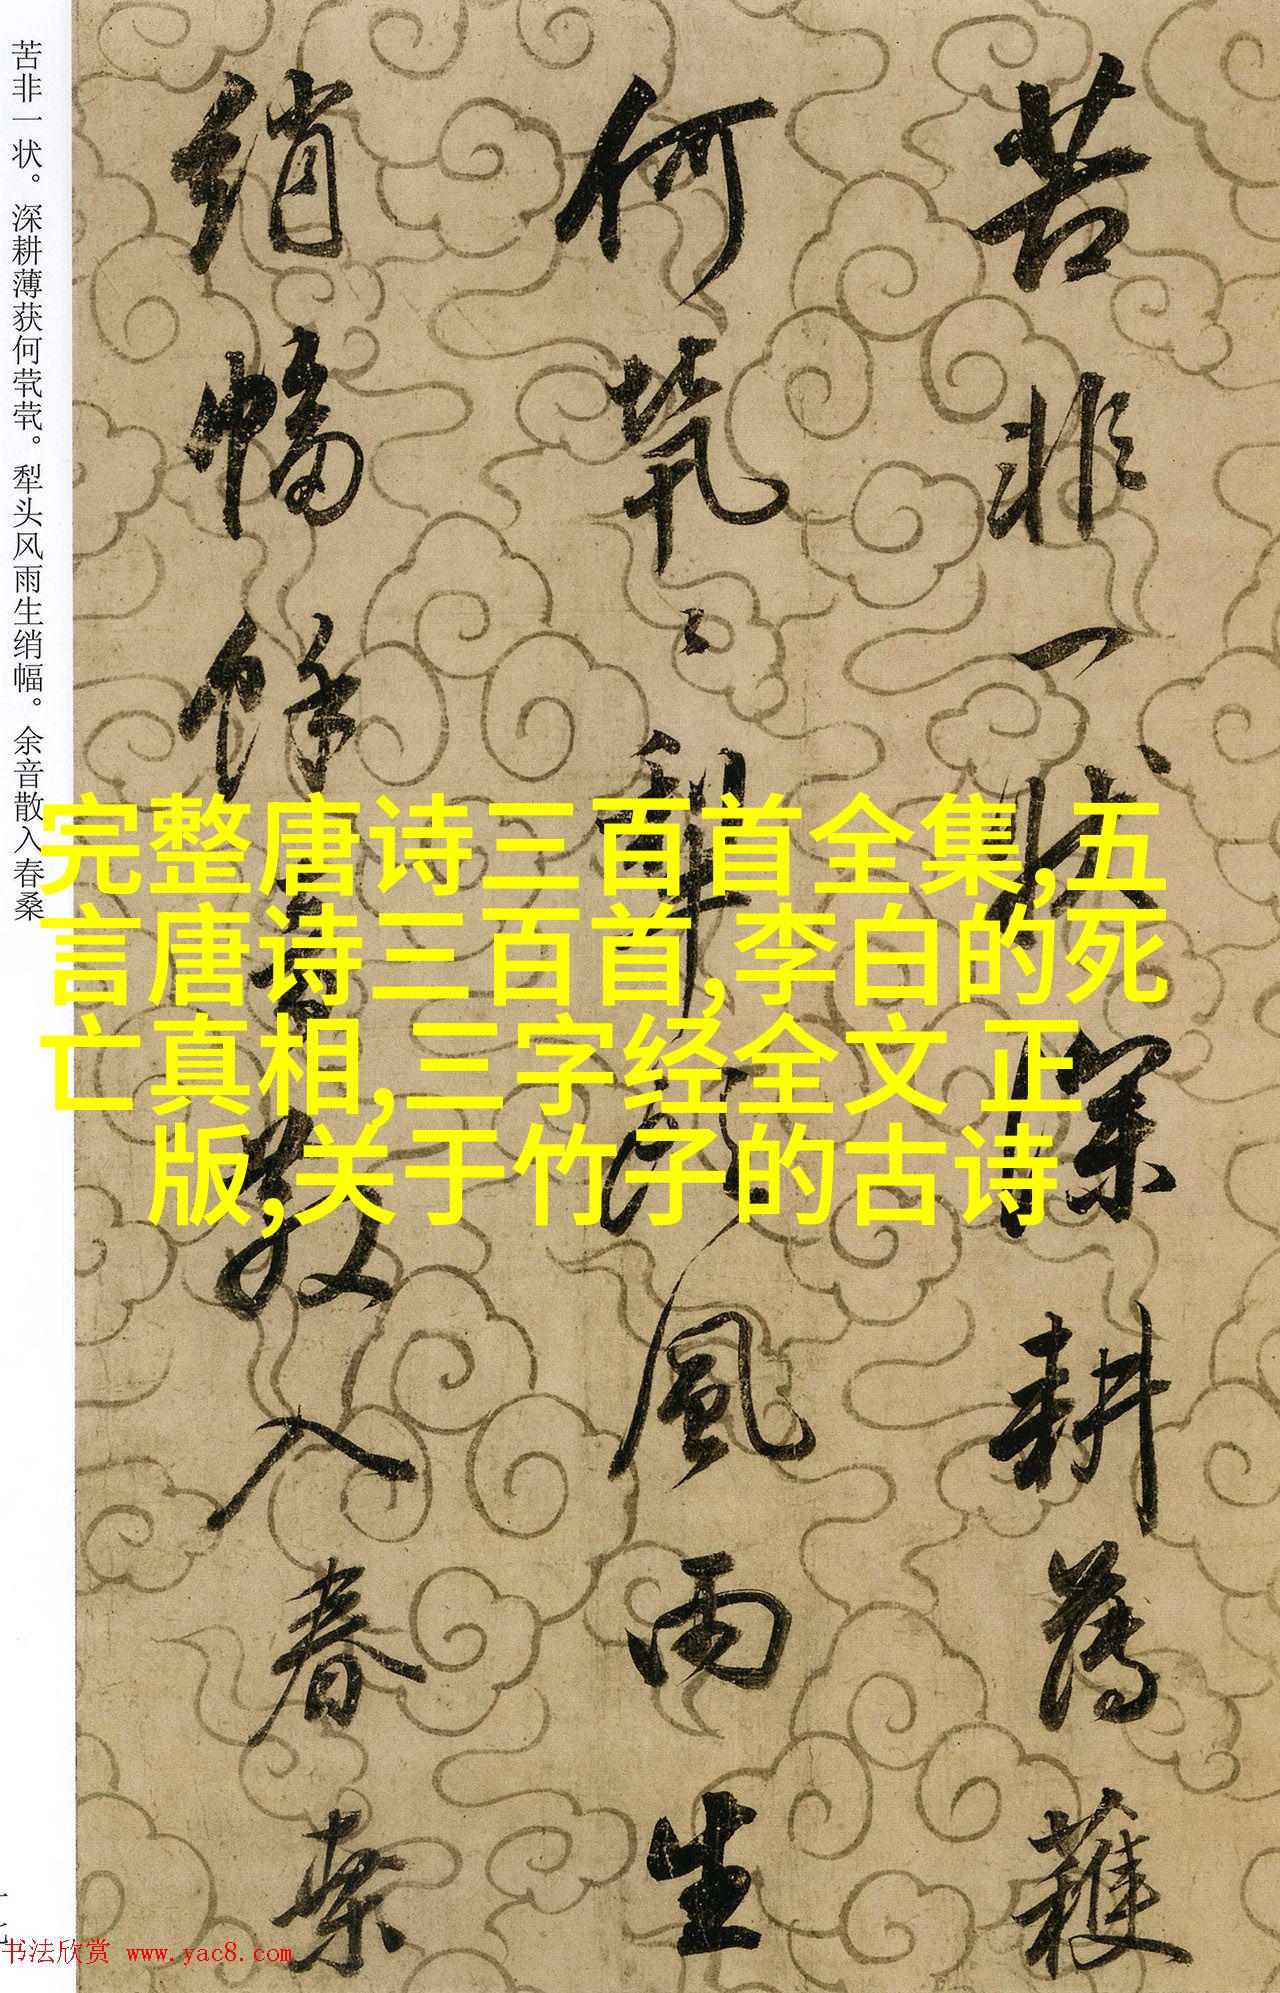 苦非一状。深耕薄获何茕茕。犁头风雨生绡幅。余音散入春桑
苦非一状深耕薄穫
何茕〻犁头風雨生
绡幅馀音散入春桑
完整唐诗三百首全集,五
言唐诗三百首,李白的死
亡真相,三字经全文 正
版,关于竹子的古诗
书法欣赏 www.yac8.com